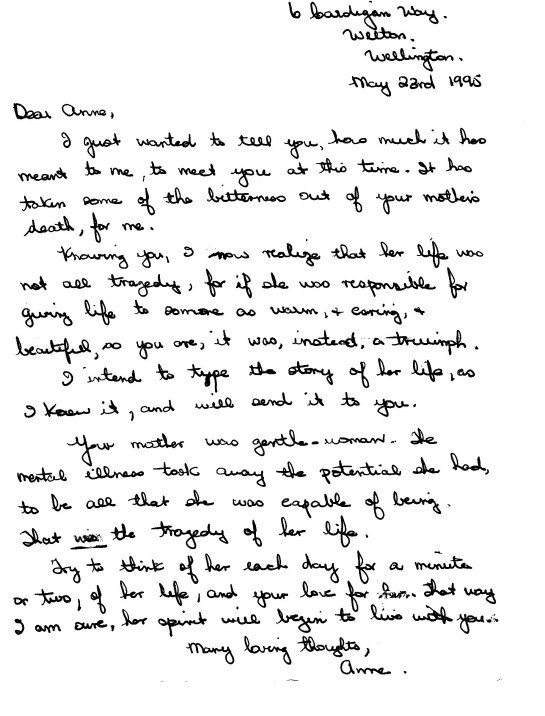 6 Cardigan Way.
Welton.
Wellington.
May 23rd 1995
Dear Anne,
I just wanted to tell you, how much it has
meant to me, to meet you at this time. It has
taken some of the bitterness out of your mother's
death, for me.
Knowing you, I now realize that her life was
not all tragedy, for if she was responsible for
giving life to someone as warm, + caring, +
beautiful, as you are, it was, instead, a triumph.
I intend to type the story of her life, as
I knew it, and will send it to you.
Your mother was gentle-woman. The
mental illness took away the potential she had,
to be all that she was capable of being.
That was the tragedy of her life.
Try to think of her each day for a minute
or two, of her life, and your love for her. That way
I am sure, her spirit will begin to live with you.
Many loving thoughts,
Anne.